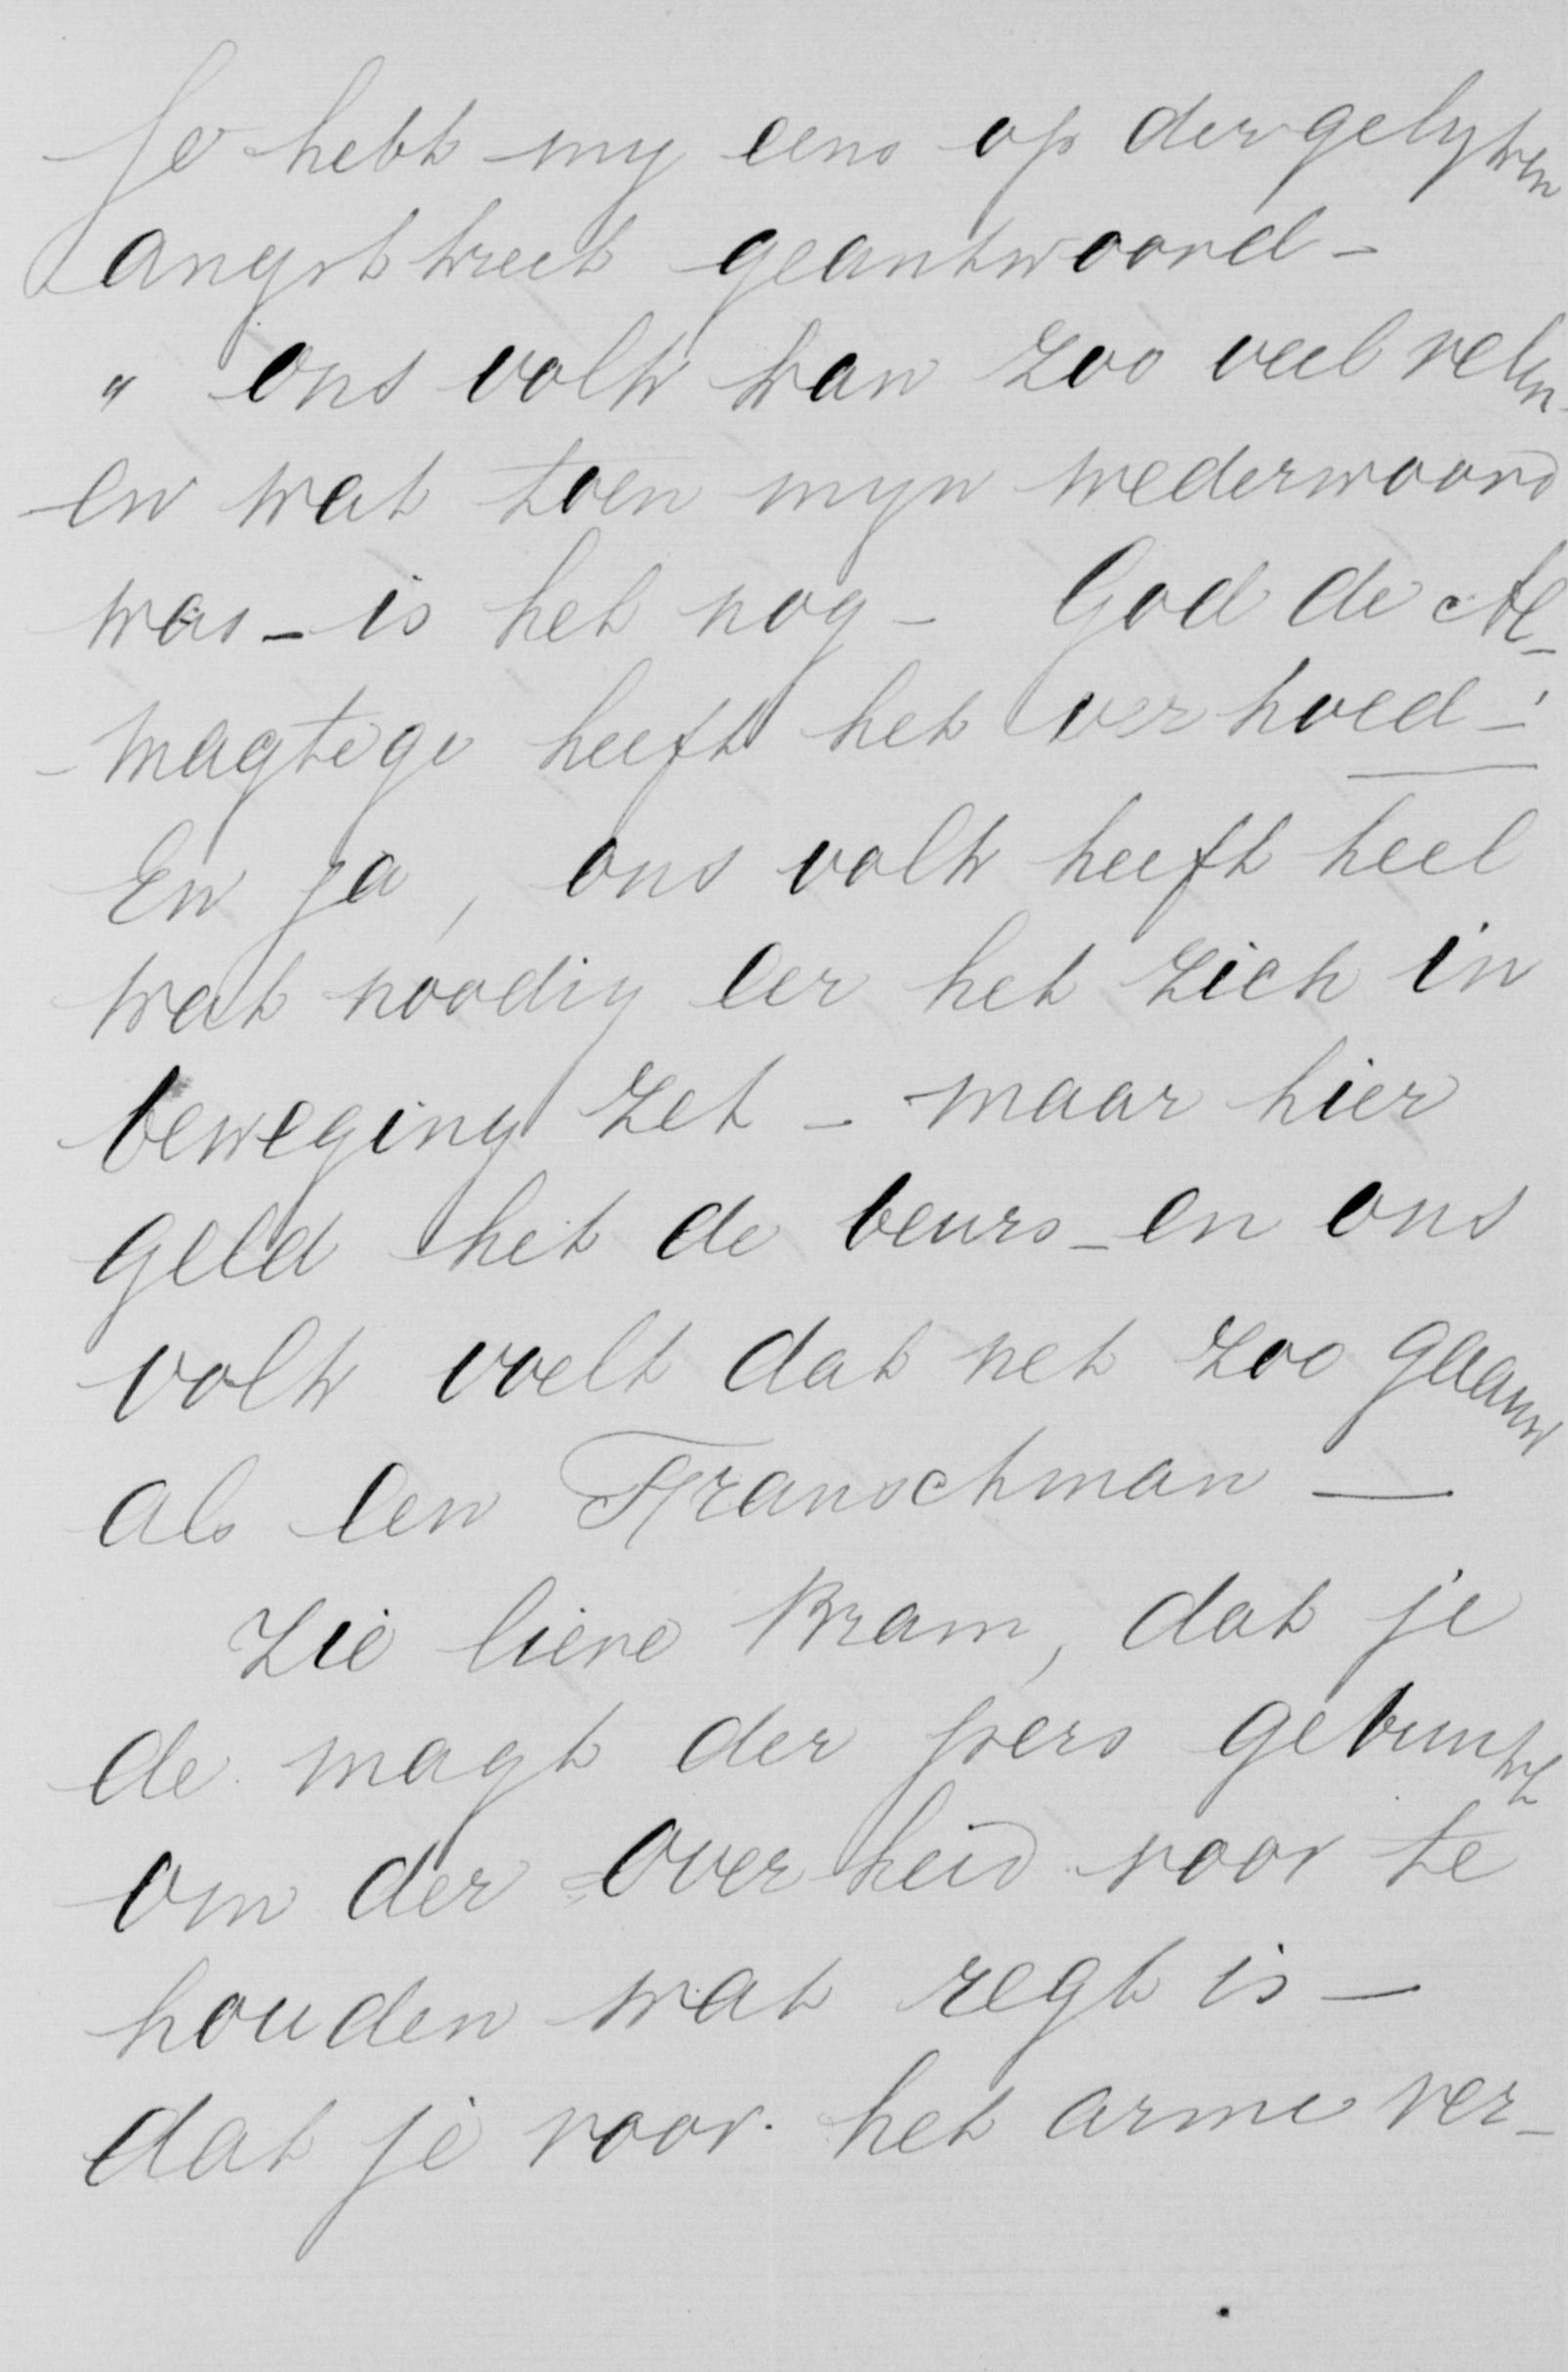 Je hebt my eens op dergelyken
angstkreet geantwoord –
" ons volk kan zoo veel velen
en wat toen myn wederwoord
was – is het nog – God de Al-
-magtege heeft het verhoed – !
En ja, ons volk heeft heel
wat noodig eer het zich in
beweging zet – maar hier
geld het de beurs – en ons
volk voelt dat net zoo gaauw
als een Franschman —
Zie lieve Bram, dat je
de magt der pers gebruikt
om der overheid voor te
houden wat regt is —
dat je voor het arme ver-